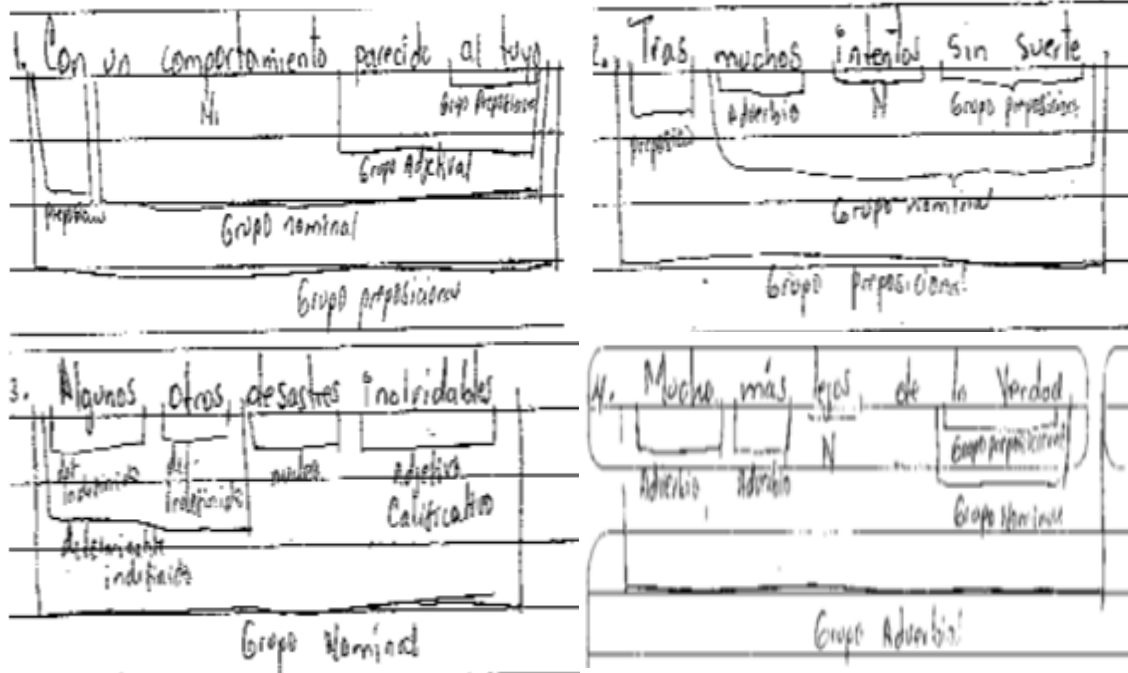 1. Con un comportamiento parecido al tuyo
N.
Grupo preposicional
Grupo Adjetival
preposición
Grupo nominal
Grupo preposicional
2. Tras muchos intentos sin suerte
preposición
Adverbio
N
Grupo preposicional
Grupo nominal
Grupo preposicional
3. Algunos otros desastres inolvidables
det indefinido
det. indefinido
núcleo
Adjetivo Calificativo
determinante indefinido
Grupo Nominal
4. Mucho más lejos de la Verdad
Adverbio
Adverbio
N
Grupo preposicional
Grupo Nominal
Grupo Adverbial